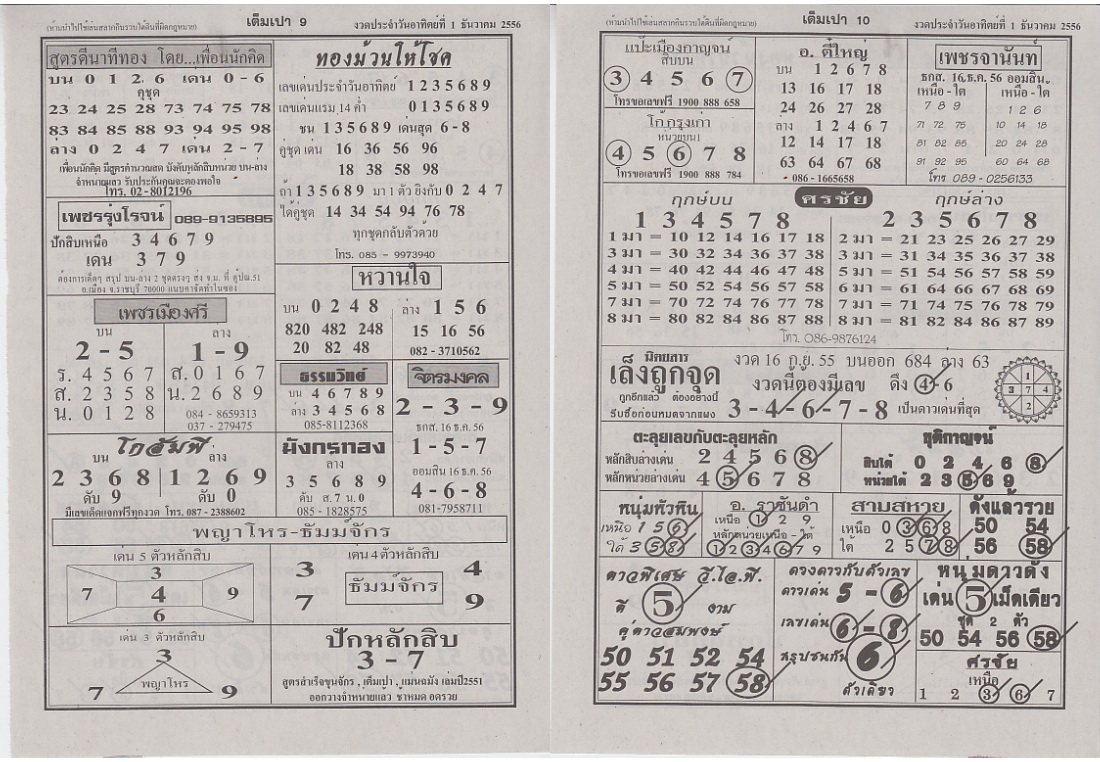 (ห้ามนำไปใช้เล่นสลากกินรวบใต้ดินที่ผิดกฎหมาย) เต็มเปา 9 งวดประจำวันอาทิตย์ที่ 1 ธันวาคม 2556
สูตรดีนาทีทอง โดย...เพื่อนนักคิด
บน 0 1 2 6 เด่น 0 - 6
คู่ชุด
23 24 25 28 73 74 75 78
83 84 85 88 93 94 95 98
ล่าง 0 2 4 7 เด่น 2 - 7
เพื่อนนักคิด มีสูตรคำนวณสด บังคับหลักสิบหน่วย บน-ล่าง
จำหนายแล้ว รับประกันคุณจะต้องพอใจ
โทร. 02-8012196
เพชรรุ่งโรจน์ 089-9135895
ปักสิบเหนือ 3 4 6 7 9
เด่น 3 7 9
ต้องการเด็ดๆ สรุป บน-ล่าง 2 ชุดตรงๆ ส่ง จ.ม. ที่ ตู้ปณ.51
อ.เมือง จ.ราชบุรี 70000
เพชรเมืองศรี
บน
2 - 5
ร. 4 5 6 7
ส. 2 3 5 8
น. 0 1 2 8
ล่าง
1 - 9
ส. 0 1 6 7
น. 2 6 8 9
084 - 8659313
037 - 279475
โกสัมพี
บน
2 3 6 8
ดับ 9
ล่าง
1 2 6 9
ดับ 0
มีเลขเด็ดแจกฟรีทุกงวด โทร. 087 - 2388602
ทองม้วนให้โชค
เลขเด่นประจำวันอาทิตย์ 1 2 3 5 6 8 9
เลขเด่นแรม 14 ค่ำ 0 1 3 5 6 8 9
ชน 1 3 5 6 8 9 เด่นสุด 6 - 8
คู่ชุด เด่น 16 36 56 96
18 38 58 98
ถ้า 1 3 5 6 8 9 มา 1 ตัว ยิงกับ 0 2 4 7
ได้คู่ชุด 14 34 54 94 76 78
ทุกชุดกลับตัวด้วย
โทร. 085 - 9973940
หวานใจ
บน 0 2 4 8
820 482 248
20 82 48
ล่าง 1 5 6
15 16 56
082 - 3710562
ธรรมวิทย์
บน 4 6 7 8 9
ล่าง 3 4 5 6 8
085-8112368
จิตรมงคล
2 - 3 - 9
ธกส. 16 ธ.ค. 56
1 - 5 - 7
ออมสิน 16 ธ.ค. 56
4 - 6 - 8
081-7958711
มังกรทอง
ล่าง
3 5 6 8 9
ดับ ส. 7 น. 0
085 - 1828575
พญาโหร-ธัมม์จักร
เด่น 5 ตัวหลักสิบ
3
7 4 9
6
เด่น 4 ตัวหลักสิบ
3 4
ธัมม์จักร
7 9
เด่น 3 ตัวหลักสิบ
3
พญาโหร
7 9
ปักหลักสิบ
3 - 7
สูตรสำเร็จขุนจักร , เต็มเปา , แม่นฉมัง เล่มปี2551
ออกวางจำหน่ายแล้ว ช้าหมด อดรวย
(ห้ามนำไปใช้เล่นสลากกินรวบใต้ดินที่ผิดกฎหมาย) เต็มเปา 10 งวดประจำวันอาทิตย์ที่ 1 ธันวาคม 2556
แป๊ะเมืองกาญจน์
สิบบน
3 4 5 6 7
โทรขอเลขฟรี 1900 888 658
โก้กรุงเก่า
หน่วยบน
4 5 6 7 8
โทรขอเลขฟรี 1900 888 784
อ. ตี๋ใหญ่
บน 1 2 6 7 8
13 16 17 18
24 26 27 28
ล่าง 1 2 4 6 7
12 14 17 18
63 64 67 68
086 -1665658
เพชรจานันท์
ธกส. 16 ธ.ค. 56 ออมสิน
เหนือ - ใต้ เหนือ - ใต้
7 8 9 1 2 6
71 72 75 10 14 18
81 82 85 20 24 28
91 92 95 60 64 68
โทร. 089 -0256133
ฤกษ์บน ศรชัย ฤกษ์ล่าง
1 3 4 5 7 8 2 3 5 6 7 8
1 มา = 10 12 14 16 17 18 2 มา = 21 23 25 26 27 29
3 มา = 30 32 34 36 37 38 3 มา = 31 34 35 36 37 38
4 มา = 40 42 44 46 47 48 5 มา = 51 54 56 57 58 59
5 มา = 50 52 54 56 57 58 6 มา = 61 64 66 67 68 69
7 มา = 70 72 74 76 77 78 7 มา = 71 74 75 76 78 79
8 มา = 80 82 84 86 87 88 8 มา = 81 82 84 86 87 89
โทร. 086-9876124
นิตยสาร
เล็งถูกจุด
ถูกอีกแล้ว ต้องอย่างนี้
รีบซื้อก่อนหมดจากแผง
งวด 16 ก.ย. 55 บนออก 684 ล่าง 63
งวดนี้ต้องมีเลข ดึง 4 - 6
3 - 4 - 6 - 7 - 8 เป็นดาวเด่นที่สุด
ตะลุยเลขกับตะลุยหลัก
หลักสิบล่างเด่น 2 4 5 6 8
หลักหน่วยล่างเด่น 4 5 6 7 8
ชุติกาญจน์
สิบใต้ 0 2 4 6 8
หน่วยใต้ 2 3 5 6 9
หนุ่มหัวหิน
เหนือ 1 5 6
ใต้ 3 5 8
อ. ราชันดำ
เหนือ 1 2 9
หลักหน่วยเหนือ - ใต้
1 2 3 4 6 7 9
สามสหาย
เหนือ 0 3 6 8
ใต้ 2 5 7 8
ดังแล้วรวย
50 54
56 58
ดาวพิเศษ วี.ไอ.พี.
ดี 5 งาม
คู่ดาวสมพงษ์
50 51 52 54
55 56 57 58
ดวงดาวกับตัวเลข
ดาวเด่น 5 - 6
เลขเด่น 6 - 8
สรุปชนกัน 6
ตัวเดียว
หนุ่มดาวดัง
เด่น 5 เม็ดเดียว
ชุด 2 ตัว
50 54 56 58
ศรชัย
เหนือ
1 2 3 6 7